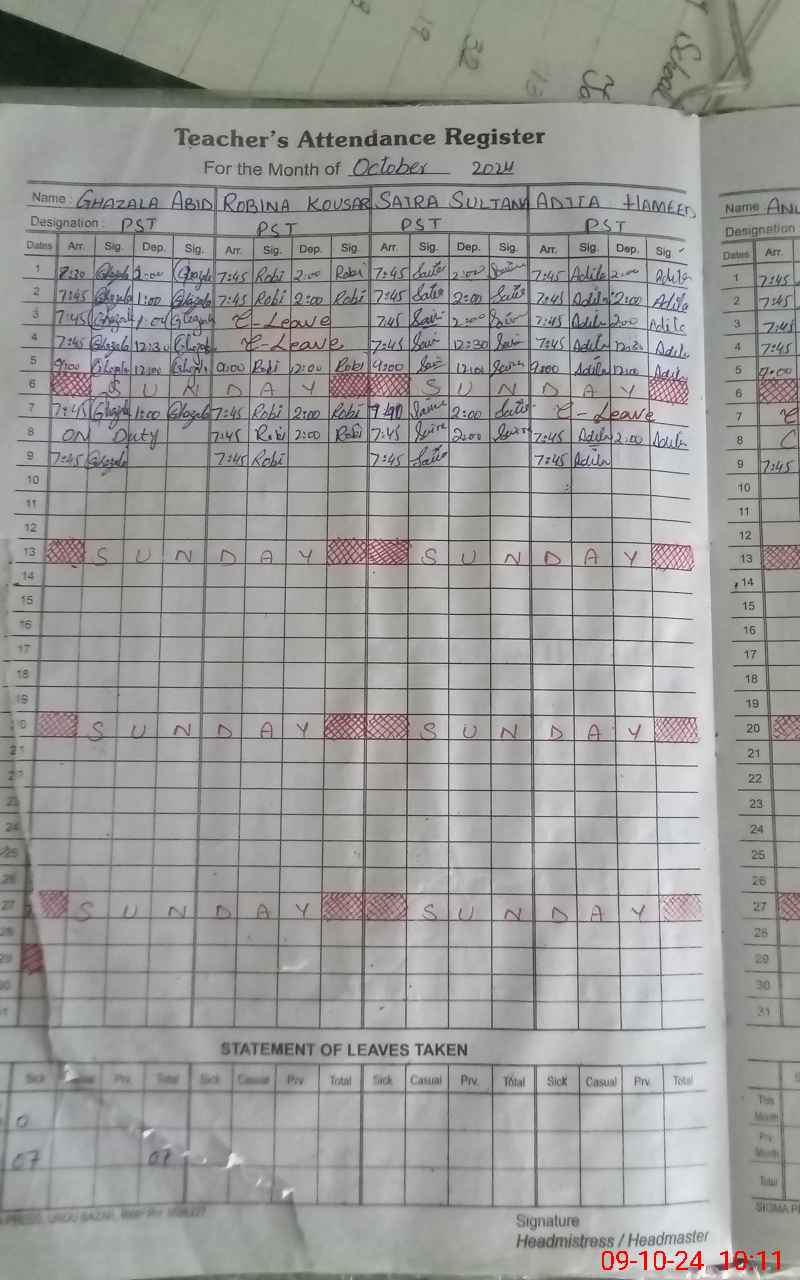 School
19
32
13
Teacher's Attendance Register
For the Month of October 2024
Name : GHAZALA ABID ROBINA KOUSAR SAIRA SULTANA ADILA HAMEED
Designation : PST PST PST PST
Dates Arr. Sig. Dep. Sig. Arr. Sig. Dep. Sig. Arr. Sig. Dep. Sig. Arr. Sig. Dep. Sig.
1 Ghazala 2:00 Ghazala 7:45 Robi 2:00 Robi 7:45 Saira 2:00 Saira 7:45 Adila 2:00 Adila
2 7:45 Ghazala 1:00 Ghazala 7:45 Robi 2:00 Robi 7:45 Saira 2:00 Saira 7:45 Adila 2:00 Adila
3 7:45 Ghazala 1:00 Ghazala C-Leave 7:45 Saira 2:00 Saira 7:45 Adila 2:00 Adila
4 7:45 Ghazala 12:30 Ghazala C-Leave 7:45 Saira 12:30 Saira 7:45 Adila 12:30 Adila
5 9:00 Ghazala 12:00 Ghazala 9:00 Robi 12:00 Robi 9:00 Saira 12:00 Saira 9:00 Adila 12:00 Adila
6 S U N D A Y S U N D A Y
7 7:45 Ghazala 1:00 Ghazala 7:45 Robi 2:00 Robi 7:40 Saira 2:00 Saira C-Leave
8 ON Duty 7:45 Robi 2:00 Robi 7:45 Saira 2:00 Saira 7:45 Adila 2:00 Adila
9 7:45 Ghazala 7:45 Robi 7:45 Saira 7:45 Adila
10
11
12
13 S U N D A Y S U N D A Y
14
15
16
17
18
19
S U N D A Y S U N D A Y
21
22
23
24
25
26
27 S U N D A Y S U N D A Y
28
29
30
STATEMENT OF LEAVES TAKEN
Sick Casual Prv. Total Sick Casual Prv. Total Sick Casual Prv. Total Sick Casual Prv. Total
0
07 07
Signature
Headmistress / Headmaster
Name
Designation
Dates Arr.
1 7:45
2 7:45
3 7:45
4 7:45
5 9:00
6
7 C
8 C
9 7:45
10
11
12
13
14
15
16
17
18
19
20
21
22
23
24
25
26
27
28
29
30
31
This Month
Prv. Month
Total
09-10-24 10:11